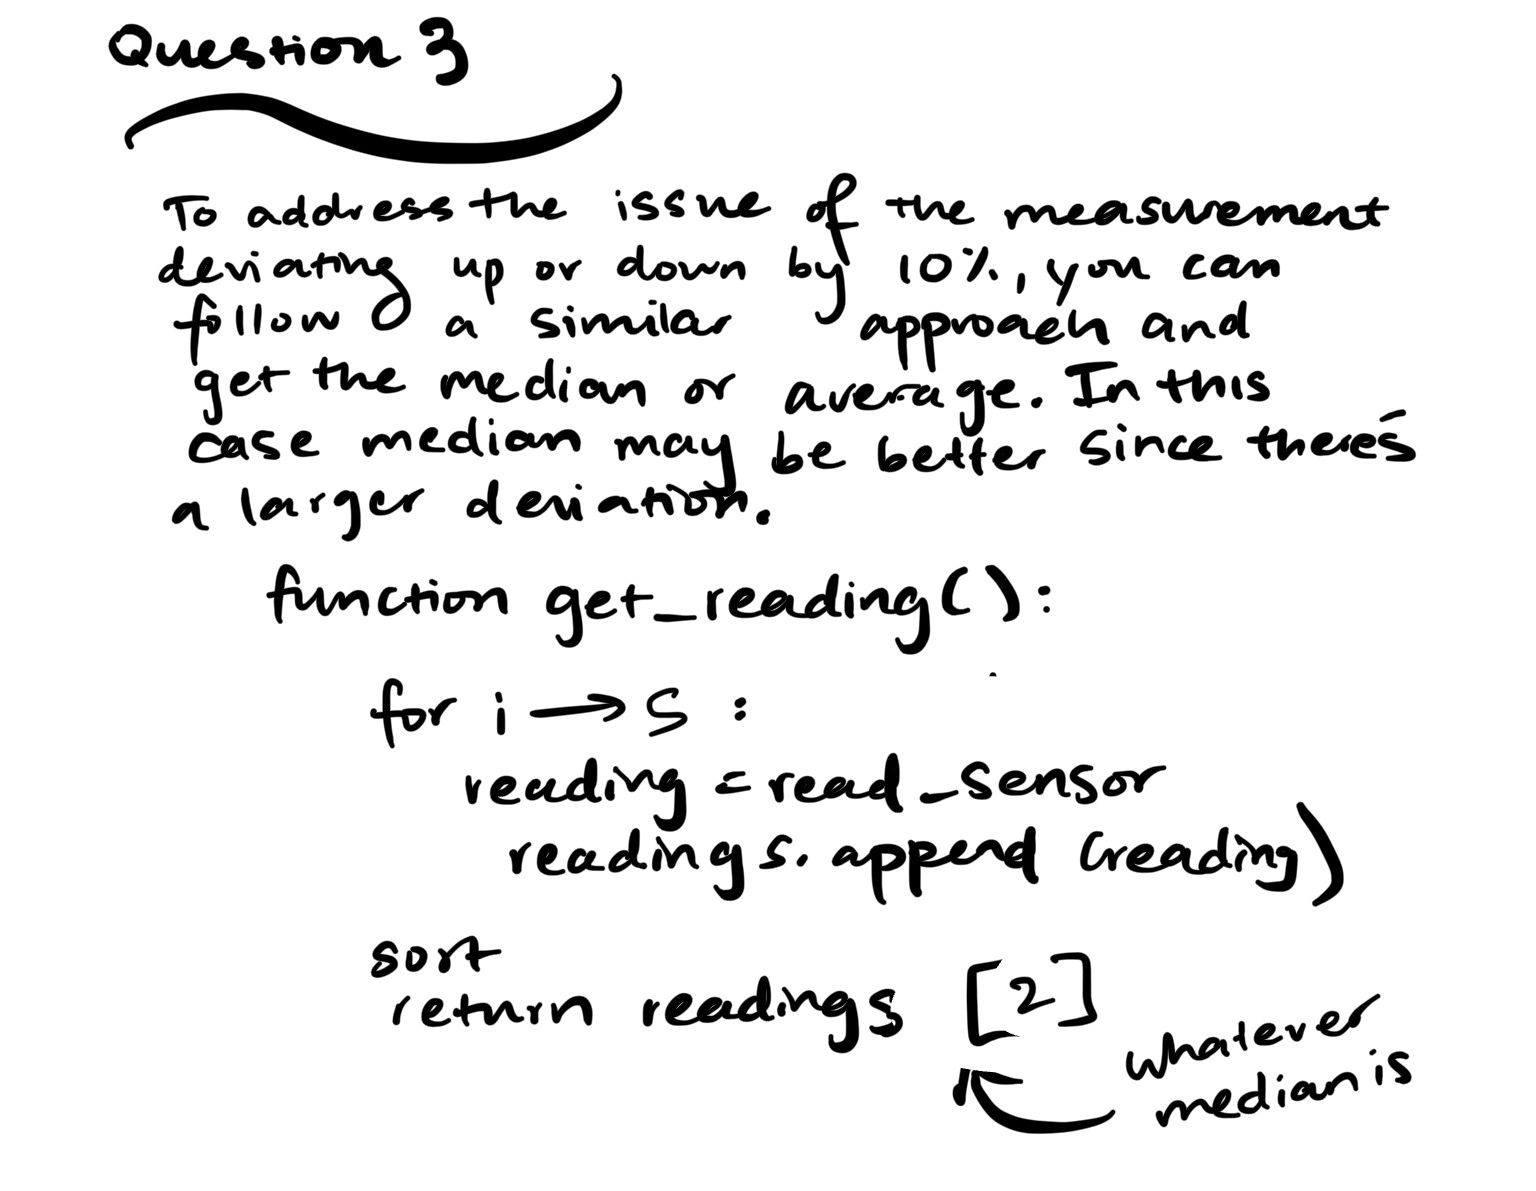 Question 3
To address the issue of the measurement
deviating up or down by 10%, you can
follow a similar approach and
get the median or average. In this
case median may be better since there's
a larger deviation.
function get_reading():
for i → 5 :
reading = read_sensor
readings.append(reading)
sort
return readings [2]
whatever
median is